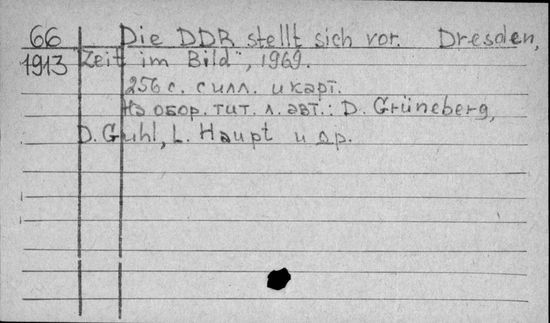 66 Die DDR stellt sich vor. Dresden,
1913 "Zeit im Bild", 1969.
256 с. с илл. и карт.
На обор. тит. л. авт.: D. Grüneberg,
D. Guhl, L. Haupt и др.